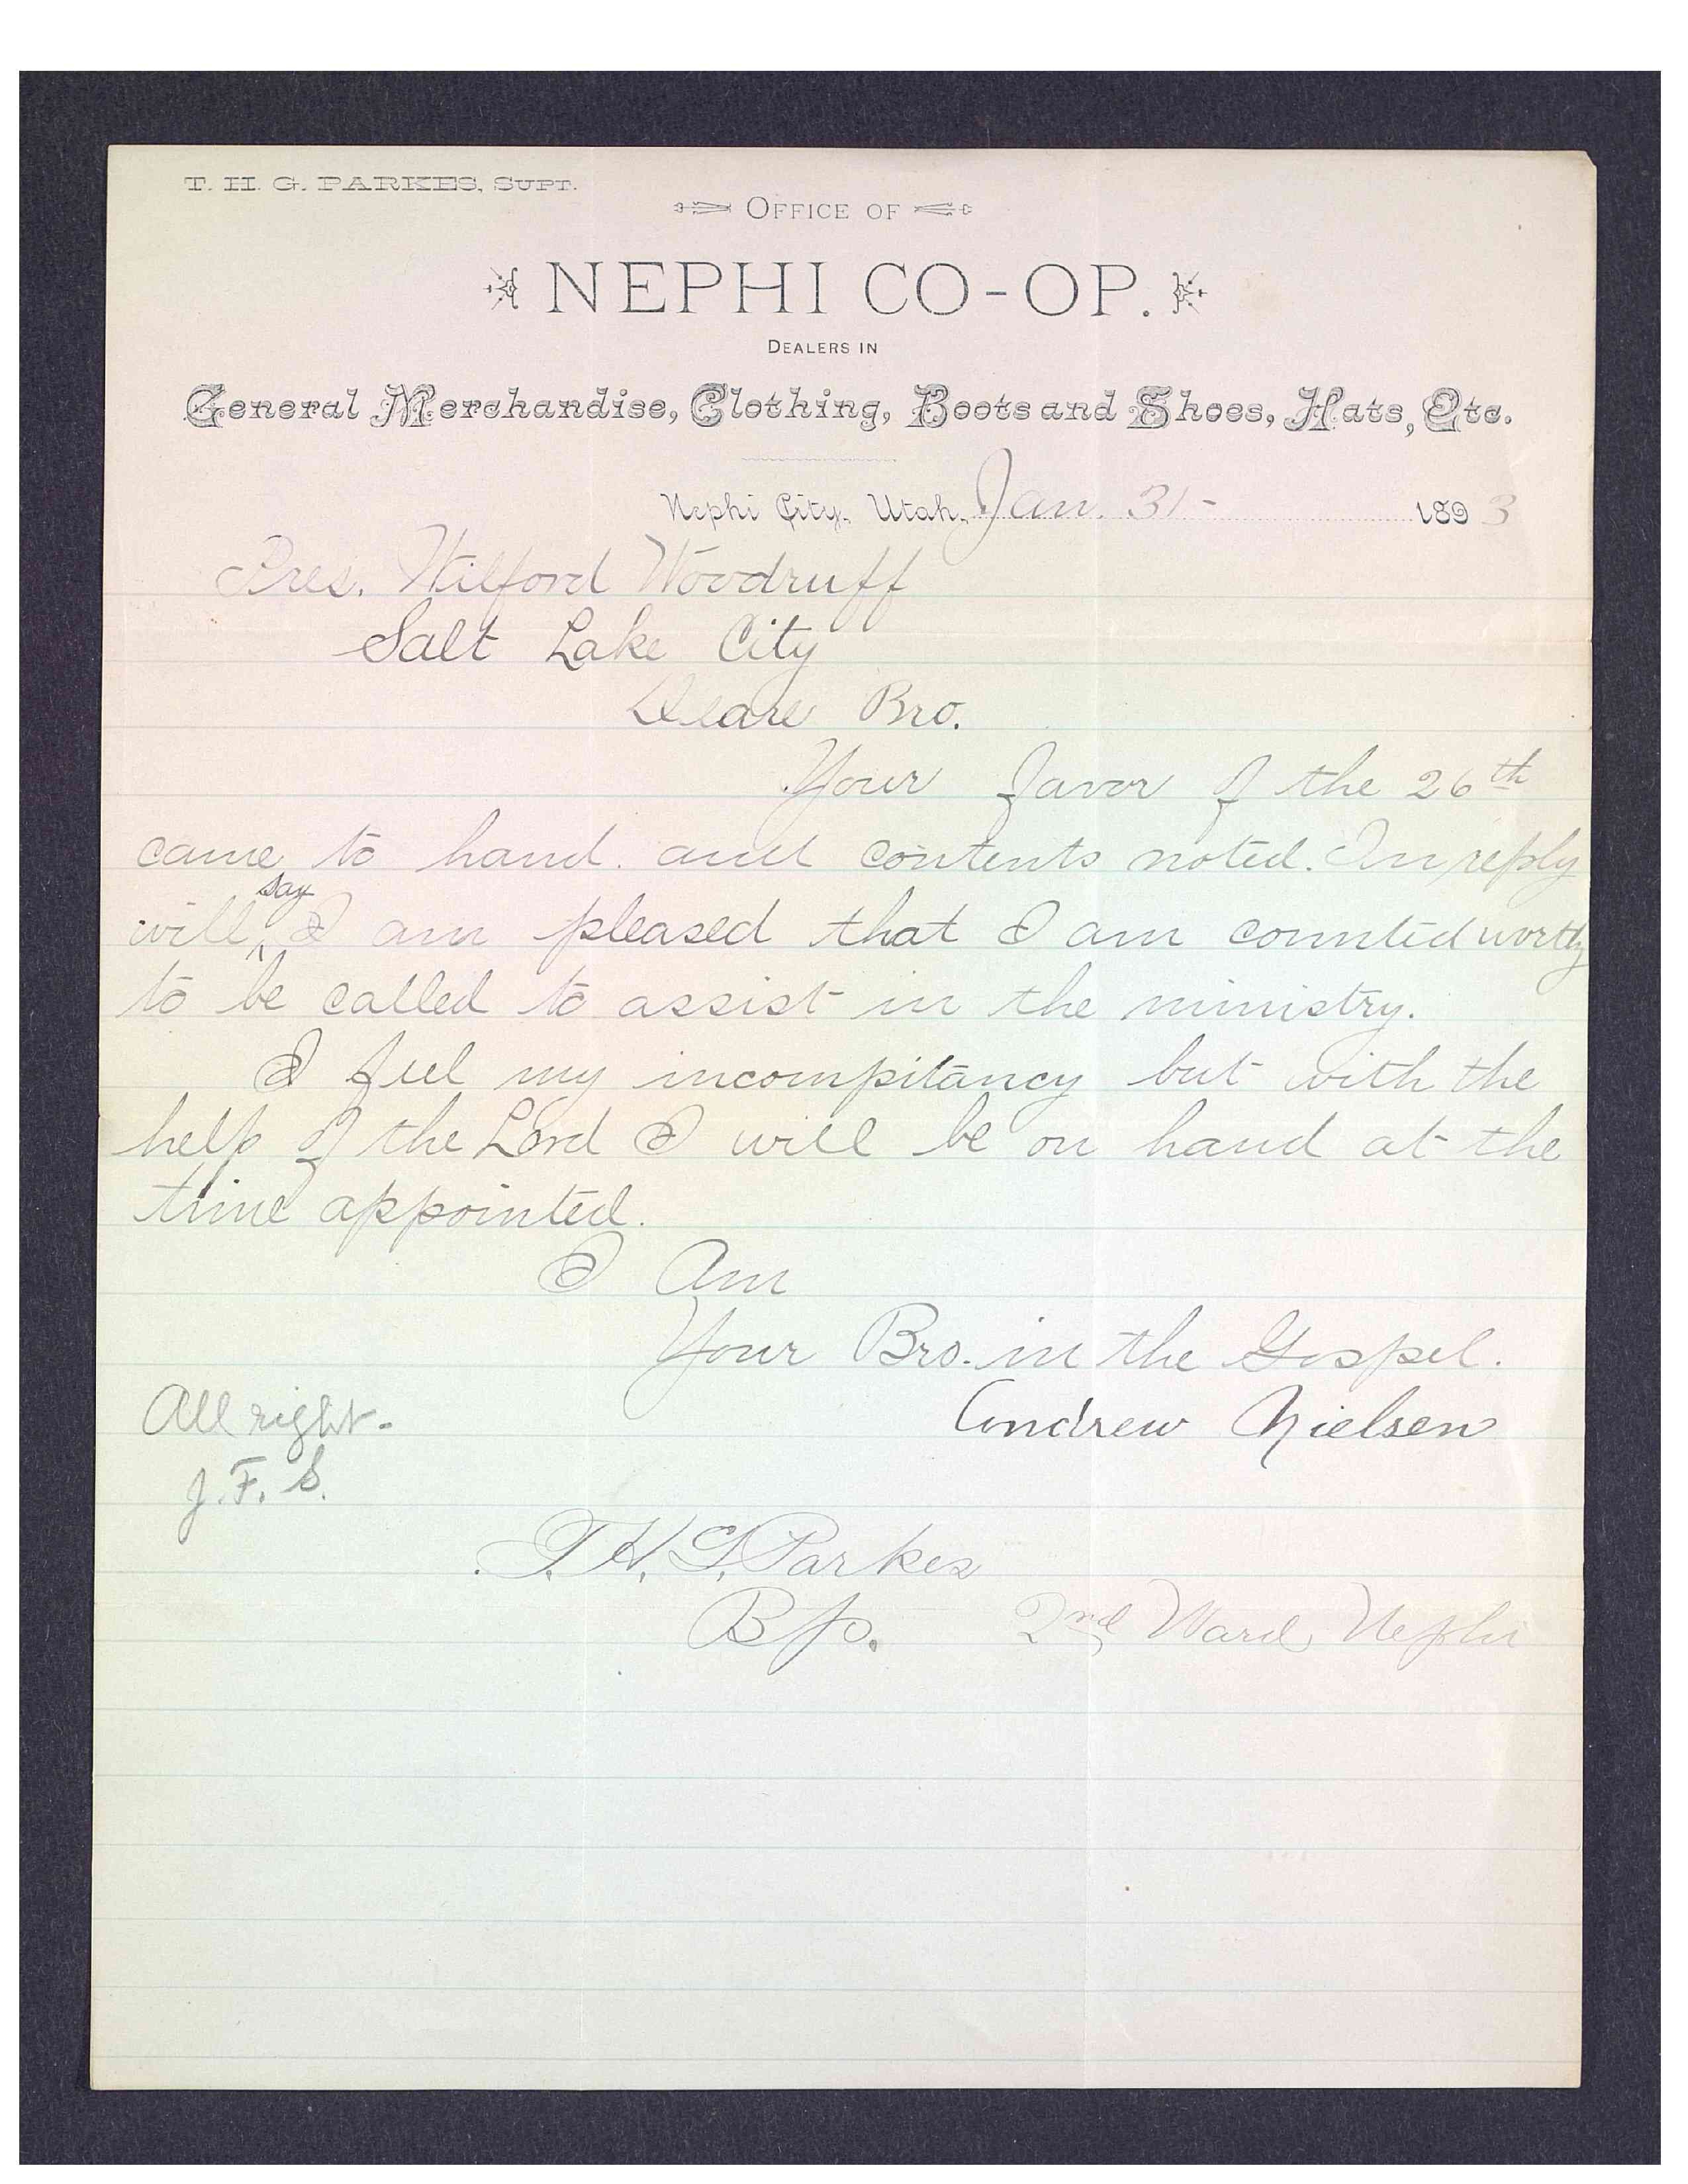 T. H. G. PARKES, SUPT.
OFFICE OF
NEPHI CO-OP.
DEALERS IN
General Merchandise, Clothing, Boots and Shoes, Hats, Etc.
Nephi City, Utah, Jan. 31- 1893
Pres. Wilford Woodruff
Salt Lake City
Deare Bro.
Your favor of the 26th
came to hand. and contents noted. In reply
will ^say I am pleased that I am counted worthy
to be called to assist in the ministry.
I feel my incompitancy but with the
help of the Lord I will be on hand at the
time appointed.
I Am
Your Bro. in the Gospel.
Andrew Nielsen
All right-
J. F. S.
T. H. G. Parkes
Bp. 2nd Ward, Nephi